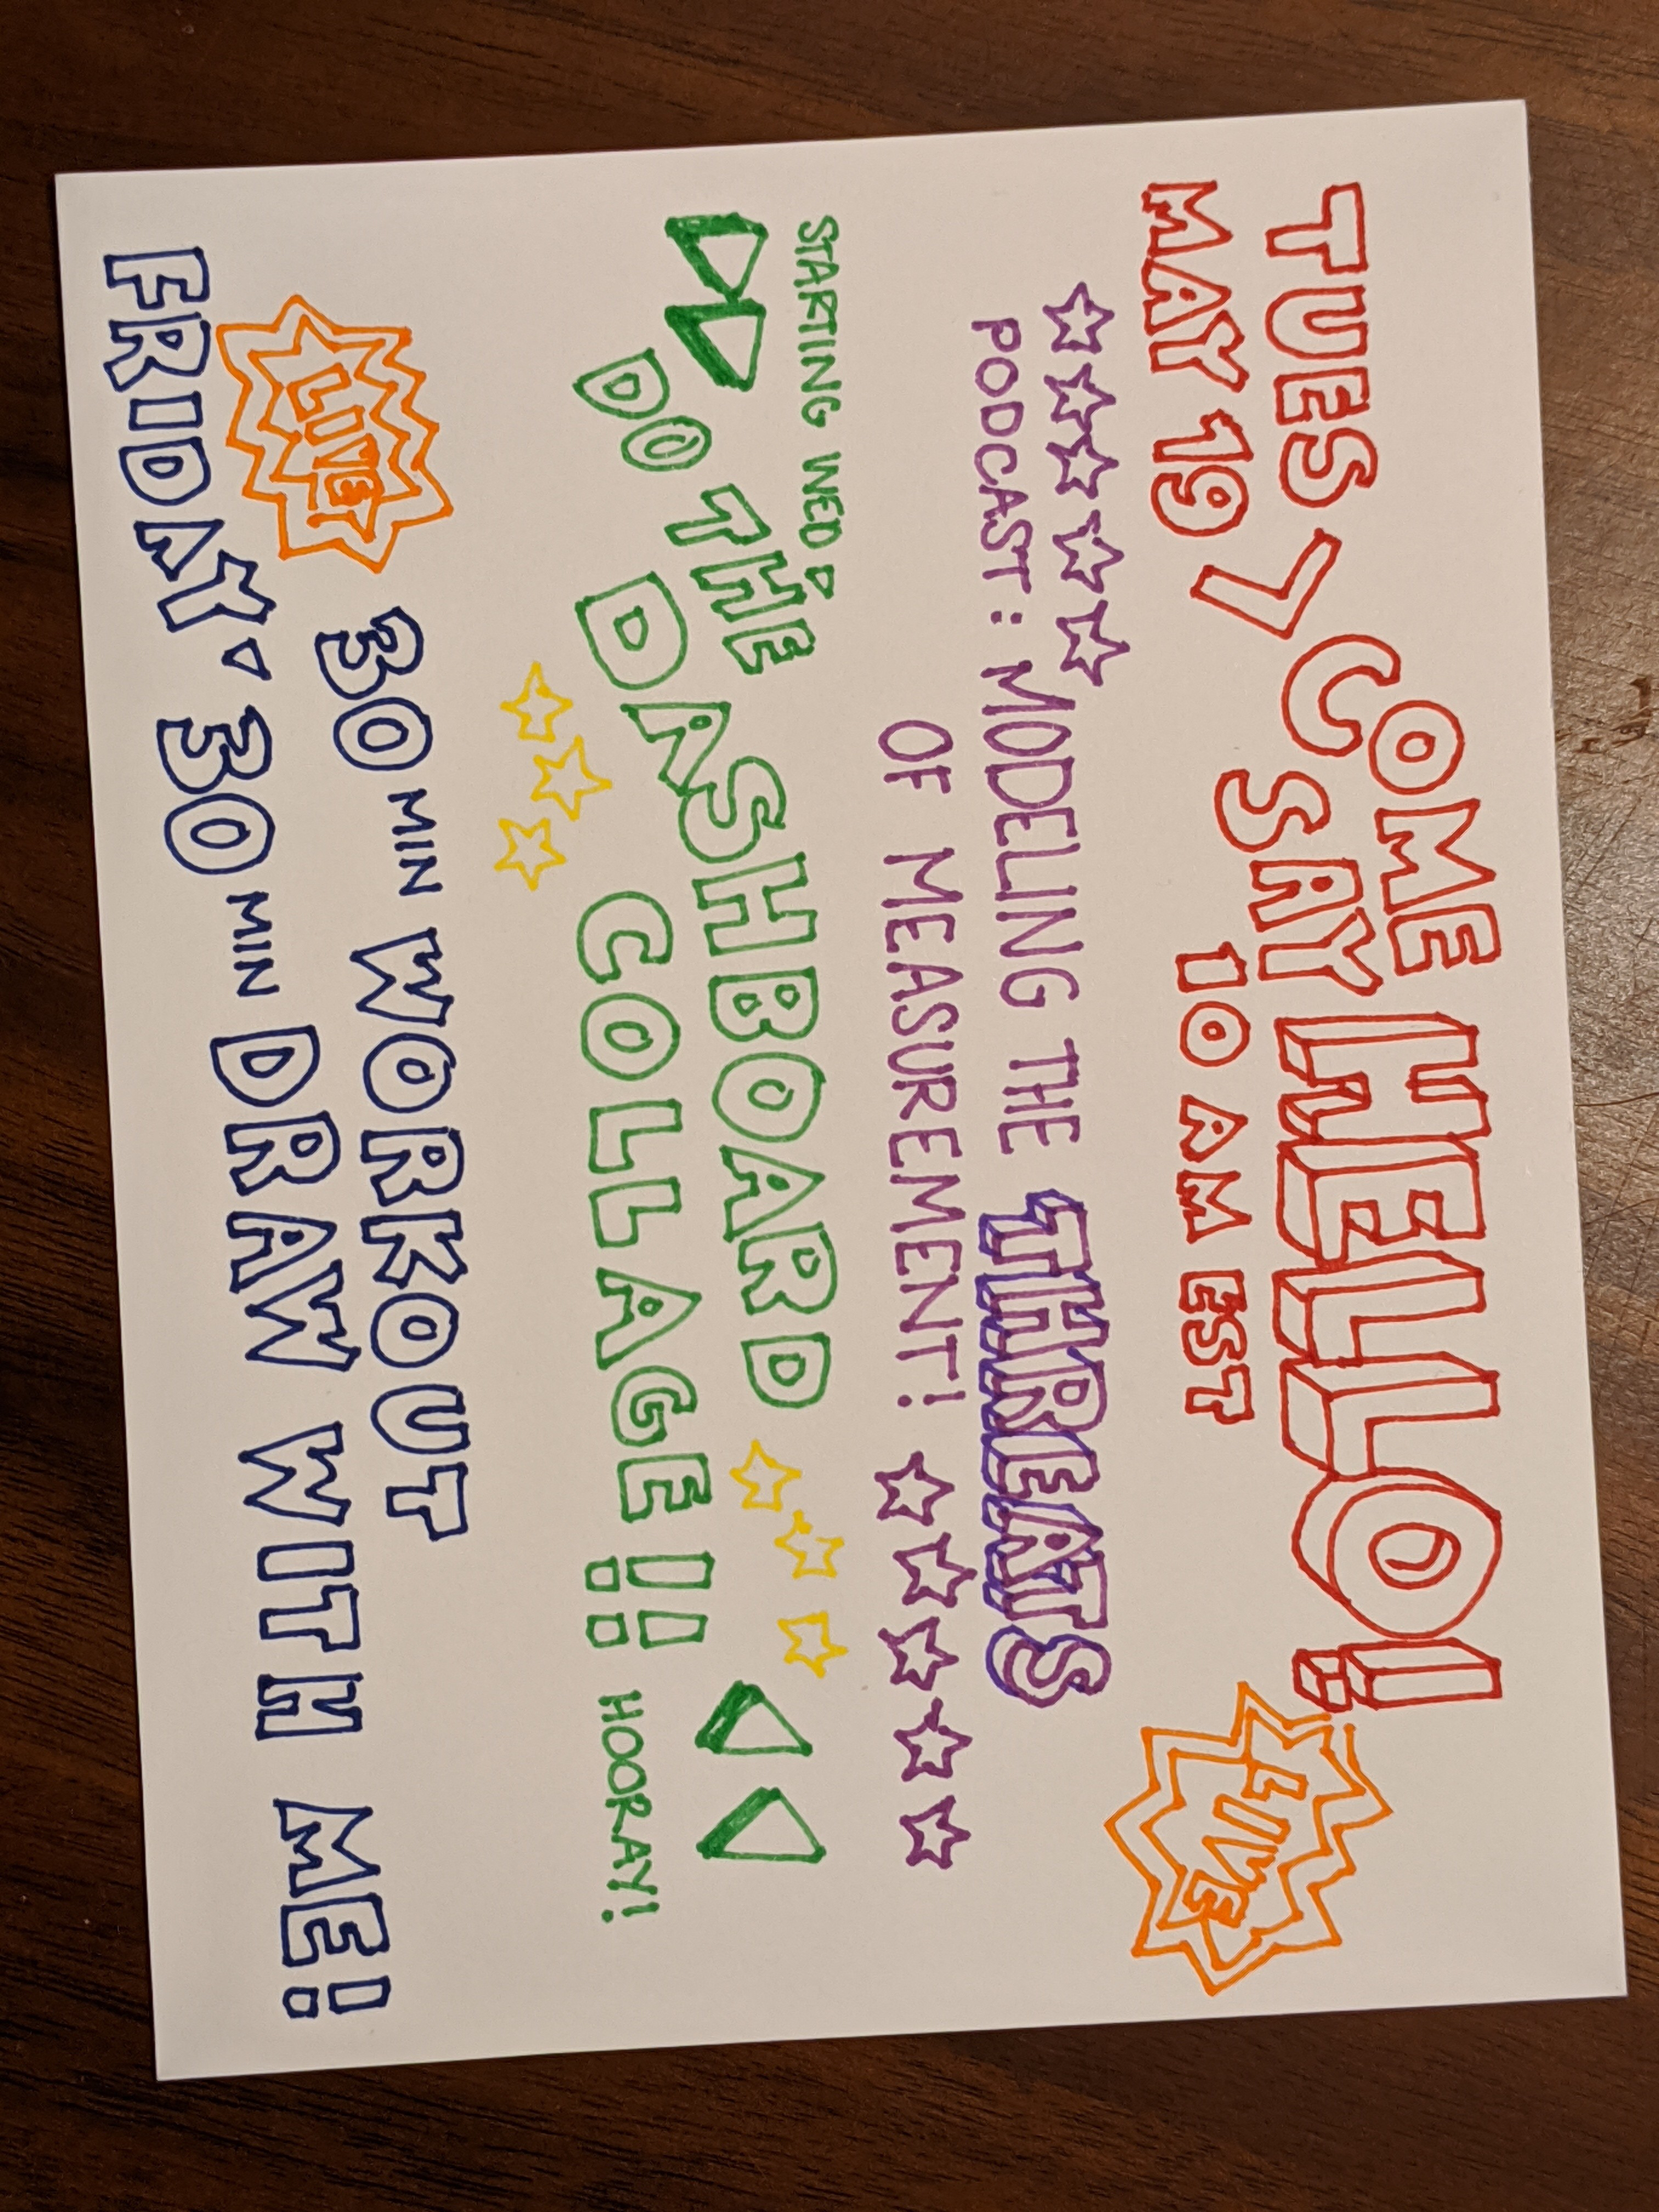 TUES > COME
MAY 19 SAY HELLO!
10 AM EST
LIVE
PODCAST: MODELING THE THREATS
OF MEASUREMENT!
STARTING WED:
DO THE
DASHBOARD
COLLAGE!! HOORAY!
LIVE
30 MIN WORKOUT
FRIDAY. 30 MIN DRAW WITH ME!